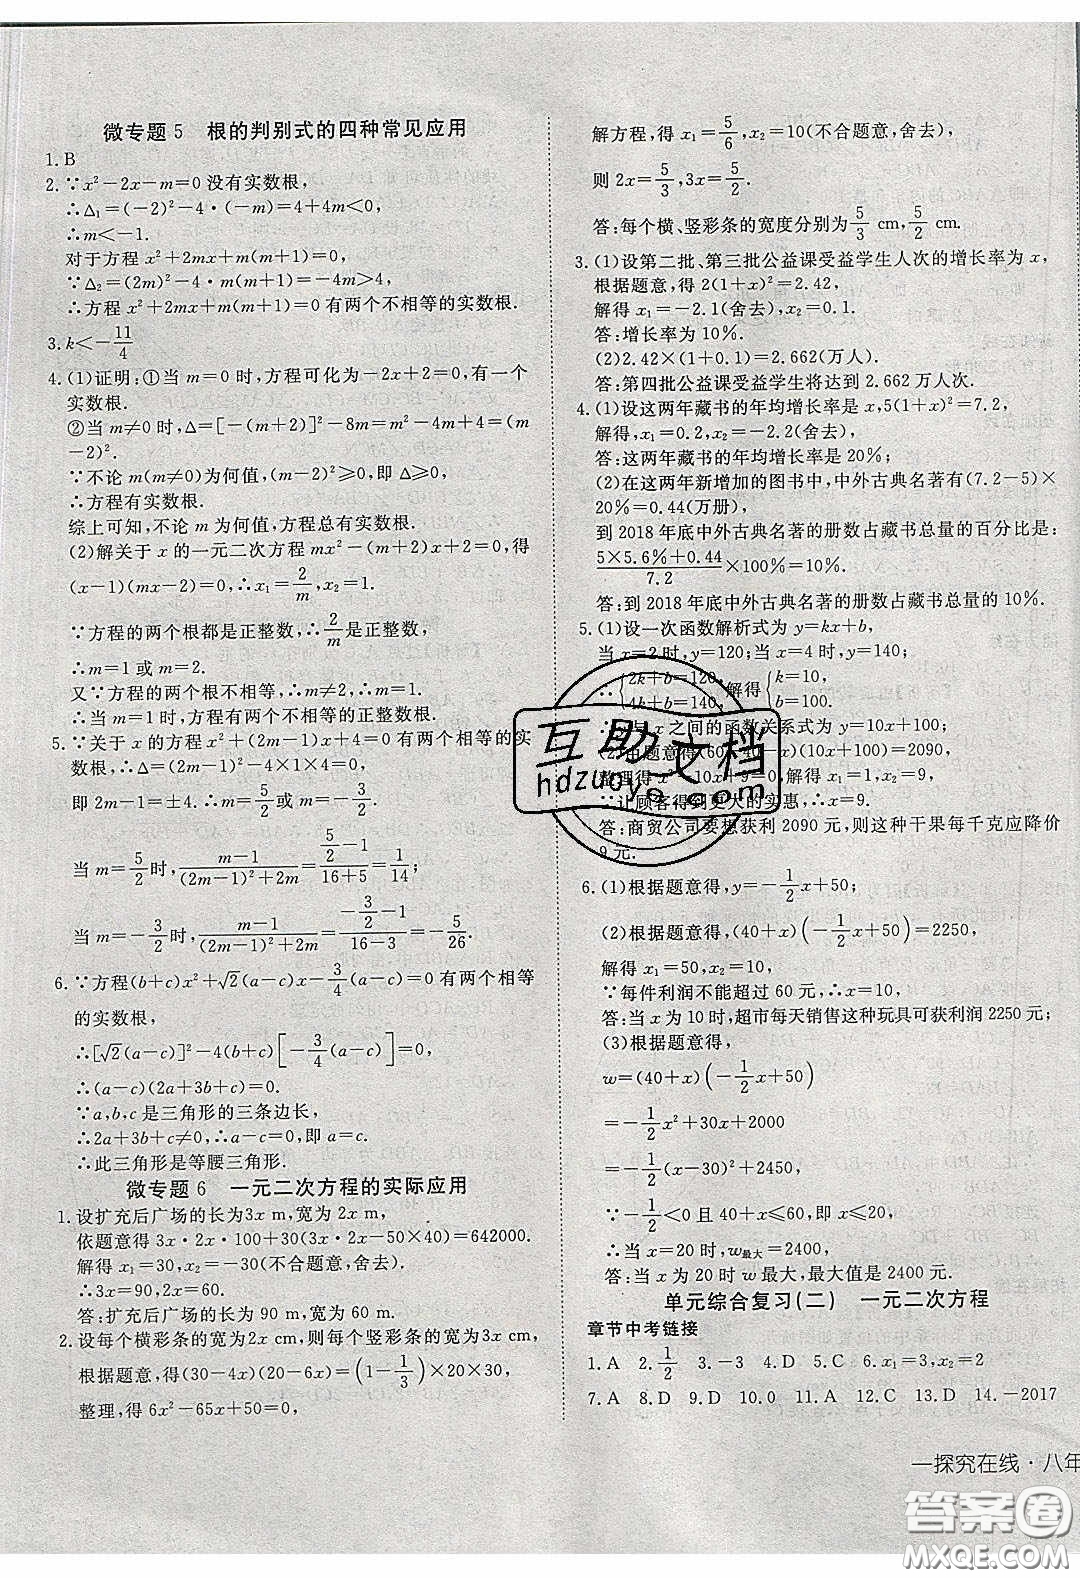 微专题 5 根的判别式的四种常见应用
1. B
2. ∵x²-2x-m=0 没有实数根,
∴Δ₁=(-2)²-4·(-m)=4+4m<0,
∴m<-1.
对于方程 x²+2mx+m(m+1)=0,
∵Δ₂=(2m)²-4·m(m+1)=-4m>4,
∴方程 x²+2mx+m(m+1)=0 有两个不相等的实数根.
3. k<-11/4
4. (1)证明:①当 m=0 时,方程可化为-2x+2=0,有一个
实数根.
②当 m≠0 时,Δ=[-(m+2)]²-8m=m²-4m+4=(m
-2)².
∵不论 m(m≠0)为何值,(m-2)²≥0,即 Δ≥0,
∴方程有实数根.
综上可知,不论 m 为何值,方程总有实数根.
(2)解关于 x 的一元二次方程 mx²-(m+2)x+2=0,得
(x-1)(mx-2)=0,∴x₁=2/m,x₂=1.
∵方程的两个根都是正整数,∴2/m是正整数,
∴m=1 或 m=2.
又∵方程的两个根不相等,∴m≠2,∴m=1.
∴当 m=1 时,方程有两个不相等的正整数根.
5. ∵关于 x 的方程 x²+(2m-1)x+4=0 有两个相等的实
数根,∴Δ=(2m-1)²-4×1×4=0,
即 2m-1=±4. ∴m=5/2或 m=-3/2.
当 m=5/2时,(m-1)/((2m-1)²+2m)=(5/2-1)/(16+5)=1/14;
当 m=-3/2时,(m-1)/((2m-1)²+2m)=(-3/2-1)/(16-3)=-5/26.
6. ∵方程(b+c)x²+√2(a-c)x-3/4(a-c)=0 有两个相等
的实数根,
∴[√2(a-c)]²-4(b+c)[-3/4(a-c)]=0,
∴(a-c)(2a+3b+c)=0.
∵a,b,c 是三角形的三条边长,
∴2a+3b+c≠0,∴a-c=0,即 a=c.
∴此三角形是等腰三角形.
微专题 6 一元二次方程的实际应用
1. 设扩充后广场的长为3x m,宽为 2x m,
依题意得 3x·2x·100+30(3x·2x-50×40)=642000.
解得 x₁=30,x₂=-30(不合题意,舍去).
∴3x=90,2x=60.
答:扩充后广场的长为 90 m,宽为 60 m.
2. 设每个横彩条的宽为2x cm,则每个竖彩条的宽为3x cm,
根据题意,得(30-4x)(20-6x)=(1-1/3)×20×30,
整理,得 6x²-65x+50=0,
解方程,得 x₁=5/6,x₂=10(不合题意,舍去).
则 2x=5/3,3x=5/2.
答:每个横、竖彩条的宽度分别为5/3 cm,5/2 cm.
3. (1)设第二批、第三批公益课受益学生人次的增长率为 x,
根据题意,得 2(1+x)²=2.42,
解得 x₁=-2.1(舍去),x₂=0.1.
答:增长率为 10%.
(2)2.42×(1+10%)=2.662(万人).
答:第四批公益课受益学生将达到 2.662 万人次.
4. (1)设这两年藏书的年均增长率是 x,5(1+x)²=7.2,
解得 x₁=0.2,x₂=-2.2(舍去),
答:这两年藏书的年均增长率是 20%;
(2)在这两年新增加的图书中,中外古典名著有(7.2-5)×
20%=0.44(万册),
到 2018 年底中外古典名著的册数占藏书总量的百分比是:
(5×5.6%+0.44)/7.2×100%=10%.
答:到 2018 年底中外古典名著的册数占藏书总量的 10%.
5. (1)设一次函数解析式为 y=kx+b,
当 x=2 时,y=120;当 x=4 时,y=140,
∴{2k+b=120, 4k+b=140, 解得{k=10, b=100.
∴y与 x 之间的函数关系式为 y=10x+100;
(2)由题意得(60-40-x)(10x+100)=2090,
整理得 x²-10x+9=0,解得 x₁=1,x₂=9.
∵让顾客得到更大的实惠,∴x=9.
答:商贸公司要想获利 2090 元,则这种干果每千克应降价
9 元.
6. (1)根据题意得,y=-1/2x+50;
(2)根据题意得,(40+x)(-1/2x+50)=2250,
解得 x₁=50,x₂=10,
∵每件利润不能超过 60 元,∴x=10,
答:当 x 为 10 时,超市每天销售这种玩具可获利润 2250 元;
(3)根据题意得,
w=(40+x)(-1/2x+50)
=-1/2x²+30x+2000
=-1/2(x-30)²+2450,
∵-1/2<0 且 40+x≤60,即 x≤20,
∴当 x=20 时,w最大=2400,
答:当 x 为 20 时 w 最大,最大值是 2400 元.
单元综合复习(二) 一元二次方程
章节中考链接
1. A 2. 1/2 3. -3 4. D 5. C 6. x₁=3,x₂=1
7. A 8. D 9. D 10. 0 11. A 12. C 13. D 14. -2017
一探究在线·八年
互助文档
hdzuoye.com
答案圈
MXQE.COM